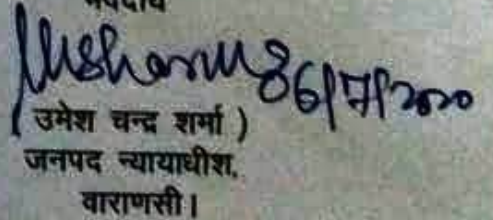 भवदीय
06/7/2020
( उमेश चन्द्र शर्मा )
जनपद न्यायाधीश,
वाराणसी।